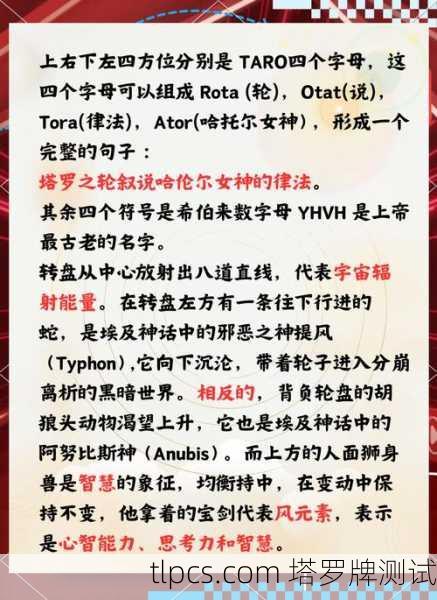 上右下左四方位分别是 TARO四个字母，这
四个字母可以组成 Rota (轮)，Otat(说)，
Tora(律法)，Ator(哈托尔女神)，形成一个
完整的句子：
塔罗之轮叙说哈伦尔女神的律法。
其余四个符号是希伯来数字母 YHVH 是上帝
最古老的名字。
转盘从中心放射出八道直线，代表宇宙辐
射能量。在转盘左方有一条往下行进的
蛇，是埃及神话中的邪恶之神提风
（Typhon),它向下沉沦，带着轮子进入分崩
离析的黑暗世界。相反的，背负轮盘的胡
狼头动物渴望上升，它也是埃及神话中的
阿努比斯神（Anubis）。而上方的人面狮身
兽是智慧的象征，均衡持中，在变动中保
持不变，他拿着的宝剑代表风元素，表示
是心智能力、思考力和智慧。
tlpcs.com 塔罗牌测试